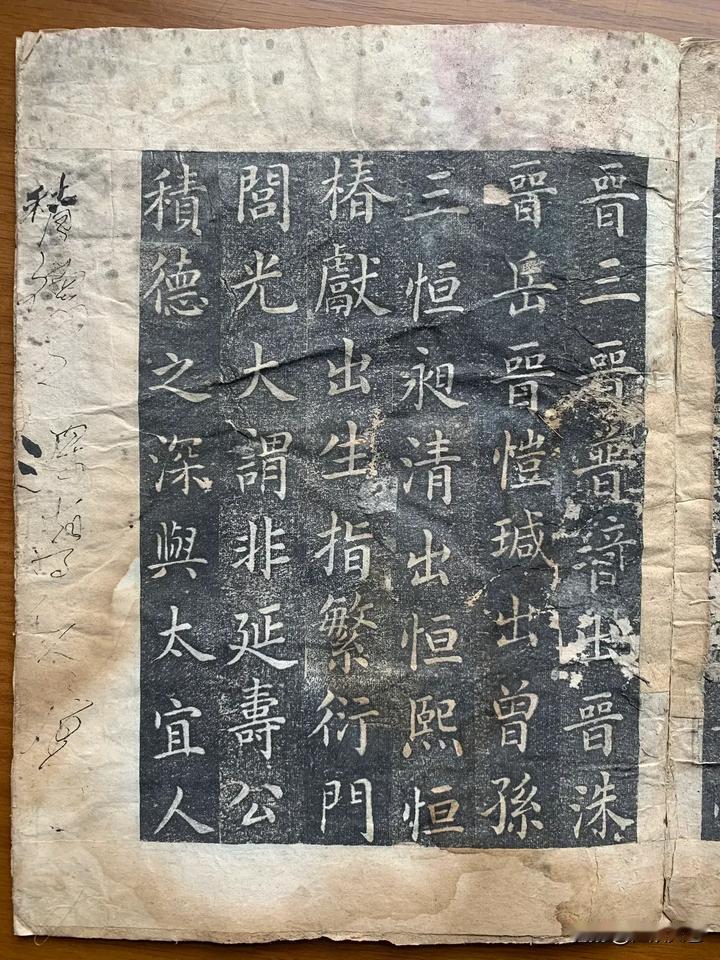 晉三晉普出晉洙
晉岳晉愷瑊出曾孫
三恒昶清出恒熙恒
椿獻出生指繁衍門
閭光大謂非延壽公
積德之深與太宜人